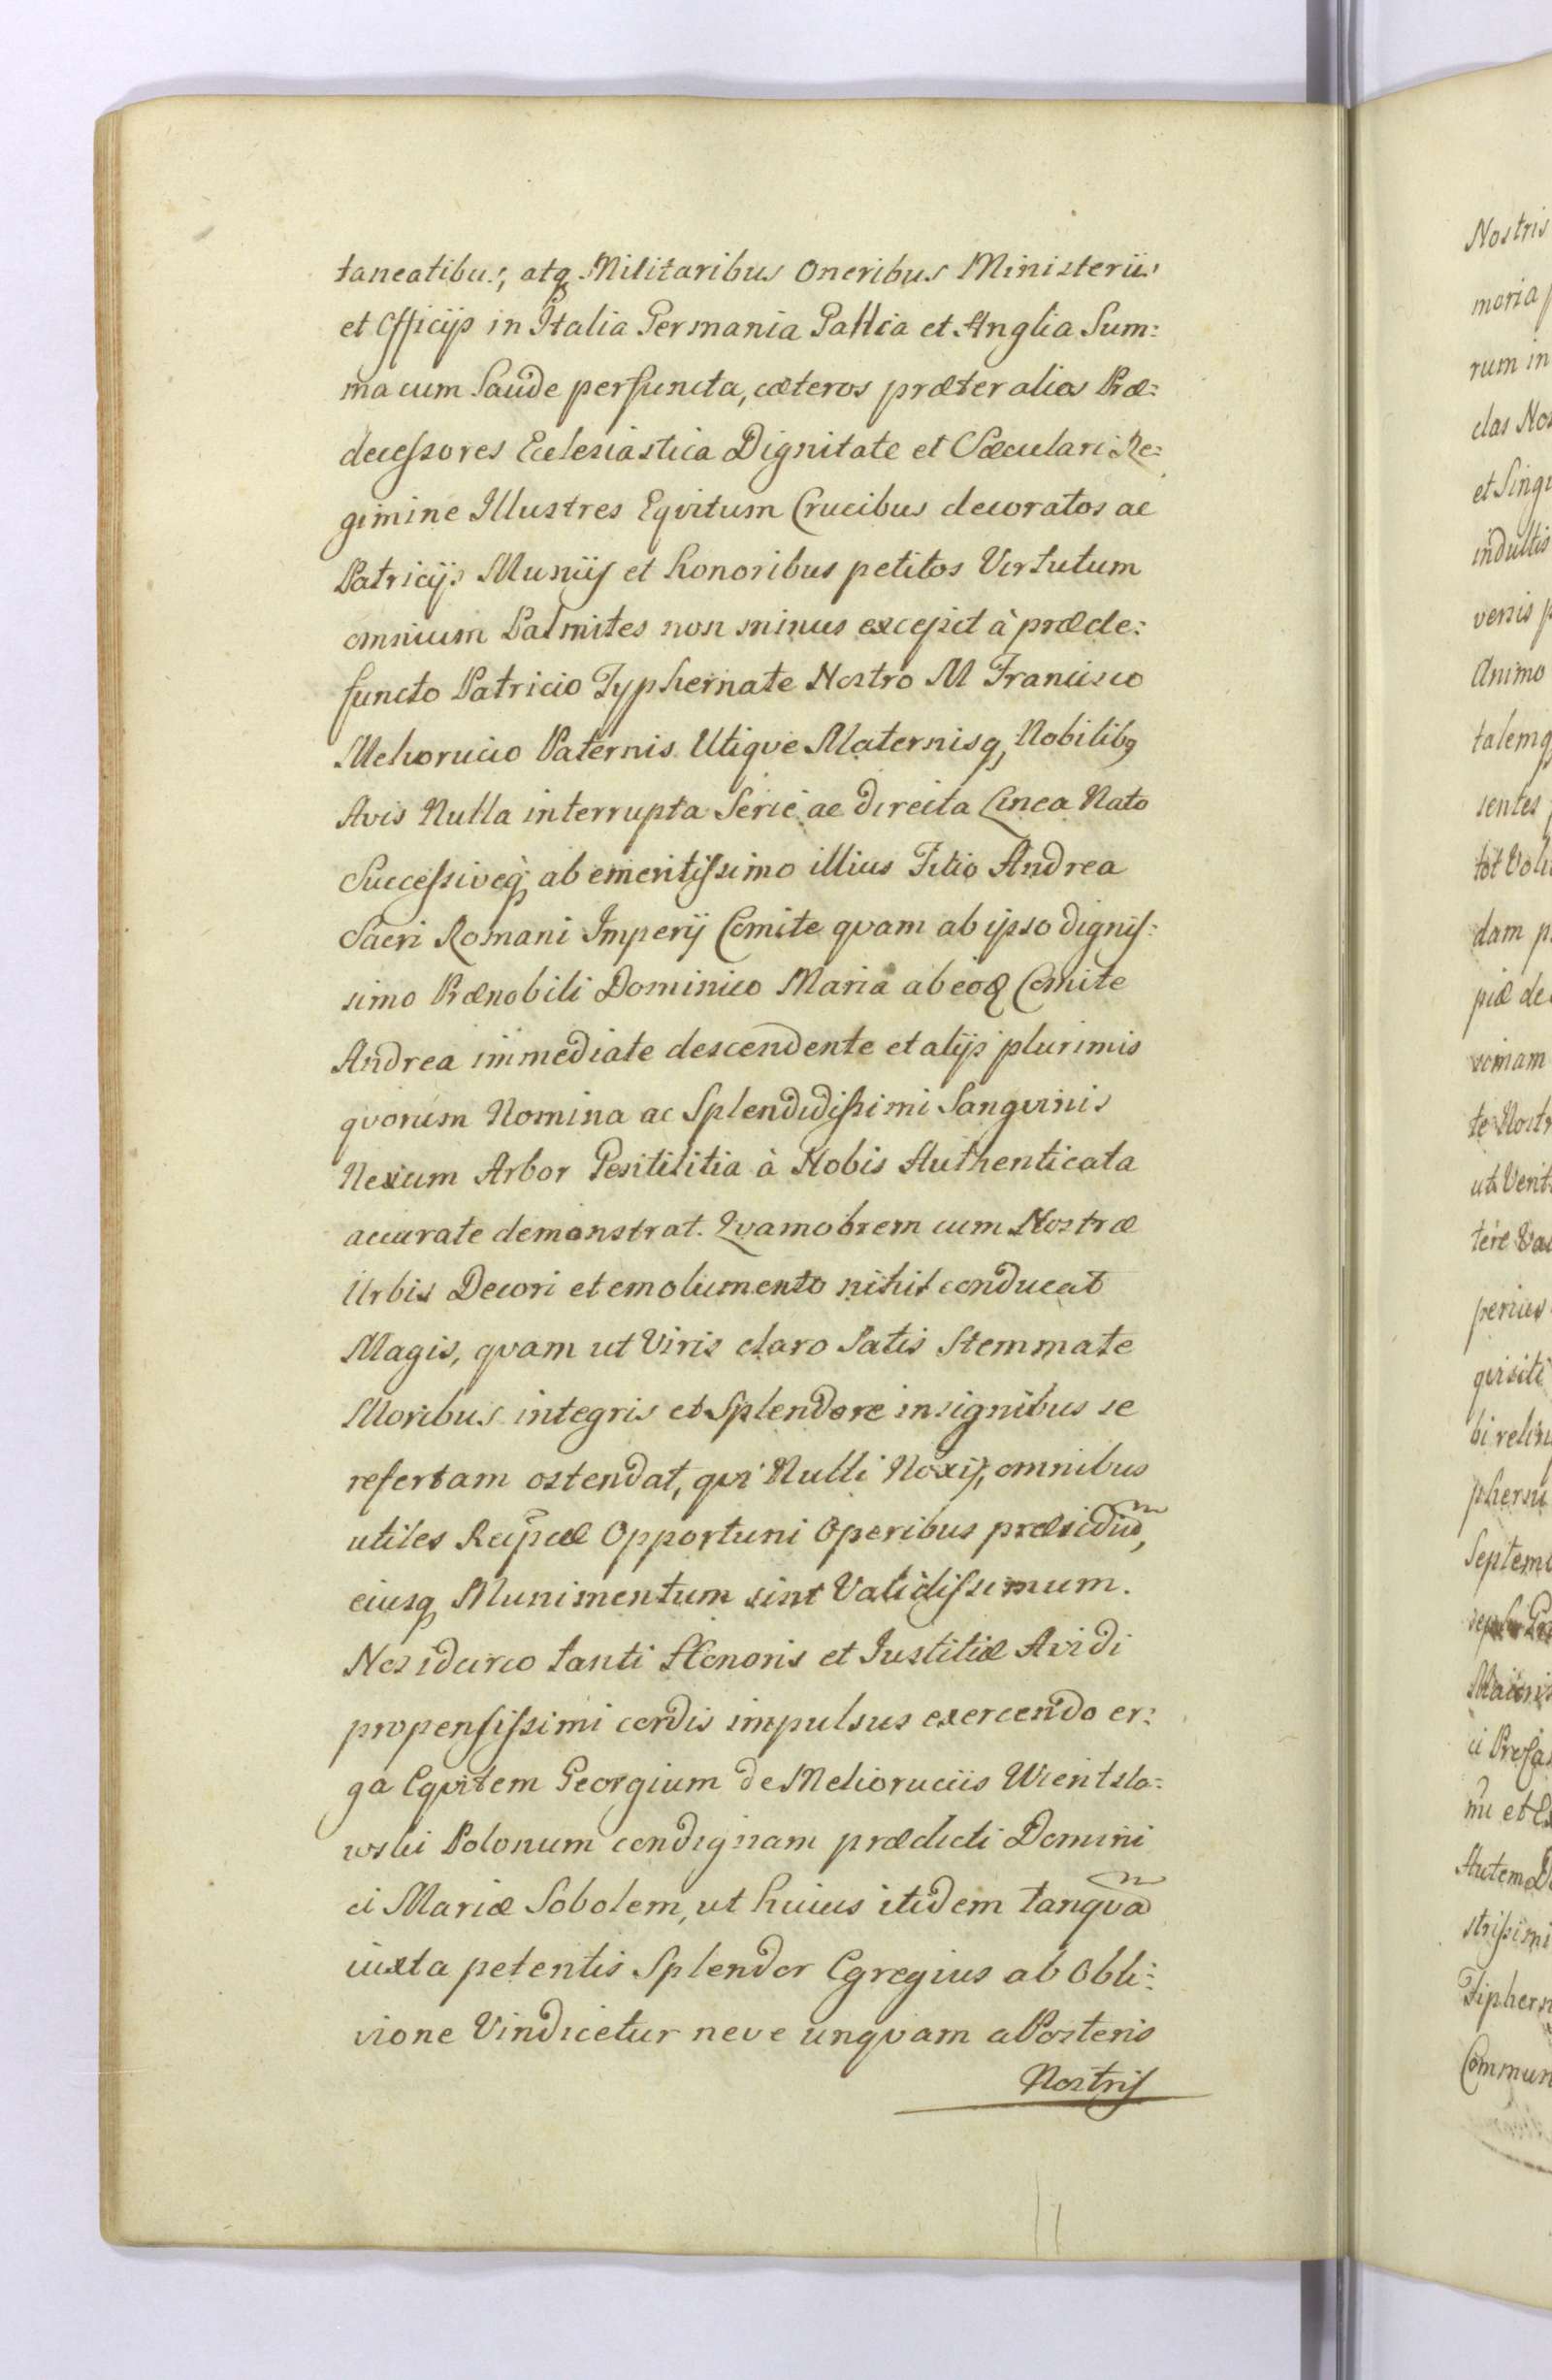 taneatibus, atq Militaribus Oneribus Ministeriis
et Officijs in Italia Germania Gallia et Anglia Sum:
ma cum Laude perfuncta, cæteros præter alios Præ:
decessores Ecclesiastica Dignitate et Sæculari Re:
gimine Illustres Eqvitum Crucibus decoratos ac
Patricijs Muniis et honoribus petitos Virtutum
omnium Palmites non minus excepit à præde:
functo Patricio Typhernate Nostro M Francisco
Meliorucio Paternis Utiqve Maternisq, Nobilibq
Avis Nulla interrupta Serie ac directa Linea Nato
Successiveq ab emeritissimo illius Filio Andrea
Sacri Romani Imperij Comite qvam ab ipso dignis:
simo Prænobili Dominico Maria ab eoq Comite
Andrea immediate descendente et alijs plurimis
qvorum Nomina ac Splendidissimi Sangvinis
Nexum Arbor Gentilitia à Nobis Authenticata
accurate demonstrat. Qvamobrem cum Nostræ
Urbis Decori et emolumento nihil conducat
Magis, qvam ut Viris claro Satis Stemmate
Moribus integris et Splendore insignibus se
refertam ostendat, qvi Nulli Noxij, omnibus
utiles Reipcæ Opportuni Operibus præsidium,
eiusq Munimentum sint Validissimum.
Nos idcirco tanti Honoris et Iustitiæ Avidi
propensissimi cordis impulsus exercendo er:
ga Eqvitem Georgium de Melioruciis Wientsla:
wski Polonum condignam prædicti Domini
ci Mariæ Sobolem, ut huius itidem tanqvam
iuxta petentis Splendor Egregius ab Obli:
vione Vindicetur neve unqvam a Posteris
Nostris
Nostris
moria
rum in
clas
et Singu
indultis
venis
Animo
talemq
sentes
tot
dam
piæ de
ut
tere
qvisiti
Septem
strissimi
Tiphern
Commun